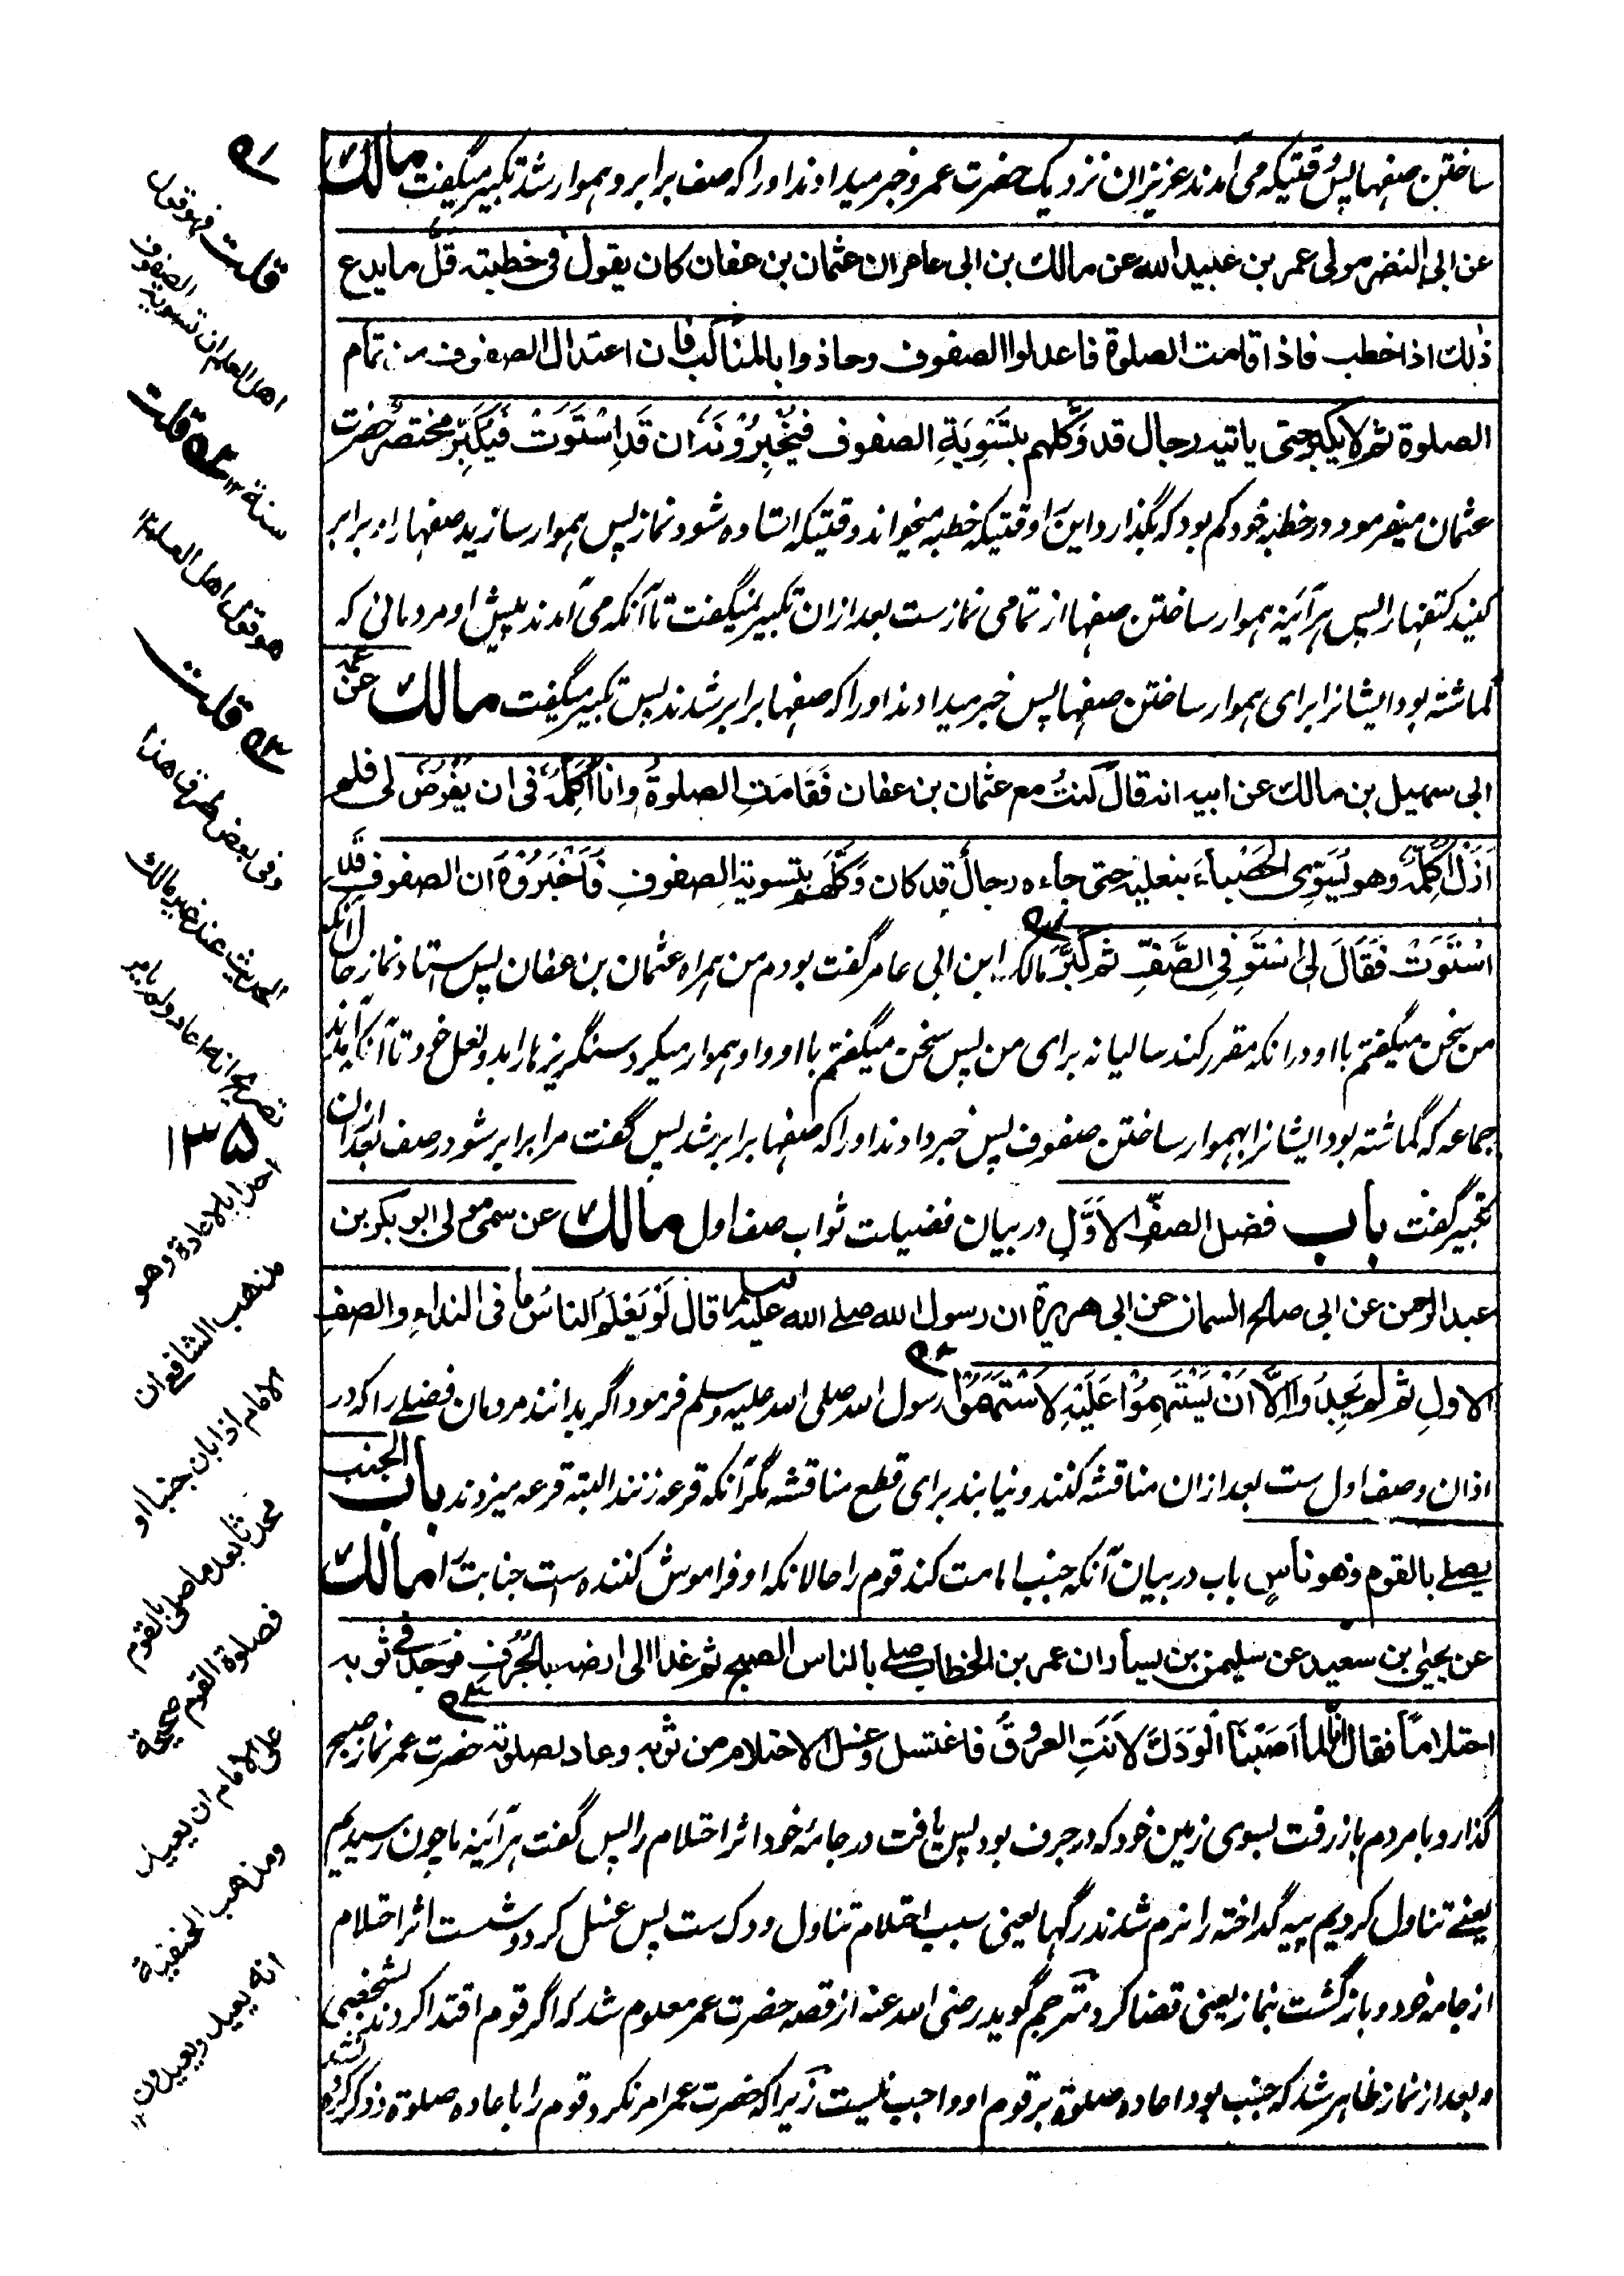 ساختن صفها پس وقتیکه می آمدند عزیزان نزدیک حضرت عمر و خبر میدادند او را که صف برابر و هموار شد تکبیر میگفت مالك
عن ابی النضر مولی عمر بن عبید الله عن مالك بن ابی عامر ان عثمان بن عفان كان يقول فی خطبته قلّ ما يدع
ذلك اذا خطب فاذا قامت الصلوة فاعدلوا الصفوف وحاذوا بالمناكب فان اعتدال الصفوف من تمام
الصلوة ثم لا يكبر حتى ياتيه رجال قد وَكَّلهم بتَسْوِيَةِ الصفوف فيُخْبِرُوْنَه ان قد اسْتَوَتْ فيُكَبِّرُ مختصر حضرت
عثمان میفرمود در خطبه خود کم بود که بگذارد این را وقتیکه خطبه میخواند وقتیکه استاده شود نماز پس هموار سازید صفها را و برابر
کنید کتفها را پس هر آئینه هموار ساختن صفها از تمامی نماز ست بعد ازان تکبیر نمیگفت تا آنکه می آمدند پیش او مردمانی که
گماشته بود ایشانرا برای هموار ساختن صفها پس خبر میدادند او را که صفها برابر شدند پس تکبیر میگفت مالك عن عمه
ابی سهيل بن مالك عن ابيه انه قال كنتُ مع عثمان بن عفان فَقَامَتِ الصلوةُ وانا اُكَلِّمُه فی ان يَفْرِضَ لی فلم
اَزَلْ اُكَلِّمُه وهو يُسَوِّی الحَصْباءَ بنعليه حتى جاءه رجالٌ قد كان وَكَّلَهم بتسوية الصفوفِ فَاَخْبَرُوْهُ ان الصفوف قد
اسْتَوَتْ فَقَالَ لی اسْتَوِ فِی الصَّفِّ ثم كبَّرَ مالك ابن ابی عامر گفت بودم من همراه عثمان بن عفان پس ستاد نماز حال آنکه
من سخن میگفتم با او در انکه مقرر کند سالیانه برای من پس سخن میگفتم با او و او هموار میکرد سنگریزها را بدو نعل خود تا آنکه آمدند
جماعه که گماشته بود ایشانرا بهموار ساختن صفوف پس خبر دادند او را که صفها برابر شد پس گفت مرا برابر شو در صف بعد ازان
تکبیر گفت باب فضل الصفّ الاوّلِ در بیان فضیلت ثواب صف اول مالك عن سمی مولی ابو بكر بن
عبد الرحمن عن ابی صالح السمان عن ابی هريرة ان رسول الله صلے الله عليه وسلم قال لَوْ يَعْلَمُ الناسُ ما فی النداءِ والصفِ
الاولِ ثم لم يَجِدُوا اِلَّا اَنْ يَسْتَهِمُوْا عَلَيْهِ لاَسْتَهَمُوْا رسول الله صلی الله علیه وسلم فرمود اگر بدانند مردمان فضلے را که در
اذان و صف اول ست بعد ازان مناقشه کنند و نیابند برای قطع مناقشه مگر آنکه قرعه زنند البته قرعه میزدند باب الجنب
يصلے بالقوم وهو ناسٍ باب در بیان آنکه جنب امامت کند قوم را حالانکه او فراموش کننده است جنابت را مالك
عن يحيى بن سعيد عن سليمن بن يسار ان عمر بن الخطاب صلے بالناس الصبح ثم غدا الى ارضه بالجُرُفِ فوجد فی ثوبه
احتلاماً فقال انّا لما اَصَبْنَا الوَدَكَ لاَنَتِ العروقُ فاغتسل وغسل الاحتلام من ثوبه وعاد لصلوته حضرت عمر نماز صبح
گذارد با مردم باز رفت بسوی زمین خود که در جرف بود پس یافت در جامه خود اثر احتلام را پس گفت هر آئینه ما چون رسیدیم
یعنے تناول کردیم پیه گداخته را نرم شدند رگها یعنی سبب احتلام تناول ودک ست پس غسل کرد و شست اثر احتلام
از جامه خود و بازگشت بنماز یعنی قضا کرد مترجم گوید رضی الله عنه از قصه حضرت عمر معلوم شد که اگر قوم اقتدا کردند بشخصی
و بعد از نماز ظاهر شد که جنب بود اعاده صلوة بر قوم او واجب نیست زیرا که حضرت عمر امر نکرد قوم را باعاده صلوة و ذکر کرده
قلت فهو قول
اهل العلم ان تسوية الصفوف
سنة ۱۲ قلت
هو قول اهل العلم ۱۲
قلت
وفی بعض طرق هذا
الحديث عند غير مالك
تصريح انه اعاد ولم يامر
۱۳۵
احدا بالاعادة وهو
مذهب الشافعی ان
الامام اذا بان جنبا او
محدثا بعد ما صلى بالقوم
فصلوة القوم صحيحة
على الامام ان يعيد
ومذهب الحنفية
انه يعيد ويعيدون